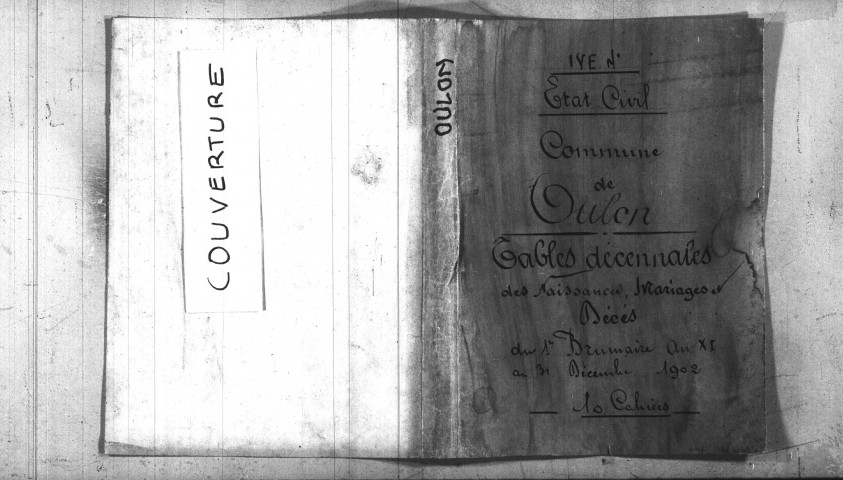 COUVERTURE
OULON
IVE N°
Etat Civil
Commune
de
Oulon
Tables décennales
des Naissances, Mariages et
Décés
du 1er Brumaire An XI
au 31 Décembre 1902
10 Cahiers